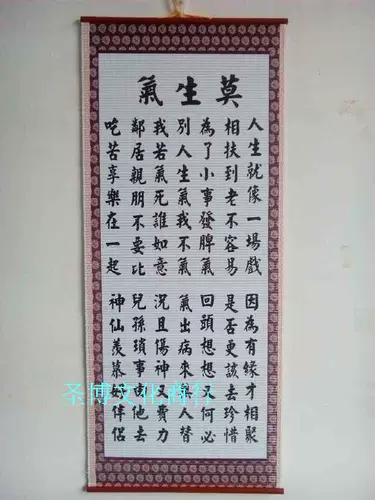 莫生氣
人生就像一場戲
因為有緣才相聚
相扶到老不容易
是否更該去珍惜
為了小事發脾氣
回頭想想又何必
別人生氣我不氣
氣出病來無人替
我若氣死誰如意
況且傷神又費力
鄰居親朋不要比
兒孫瑣事由他去
吃苦享樂在一起
神仙羨慕好伴侶
圣博文化商行